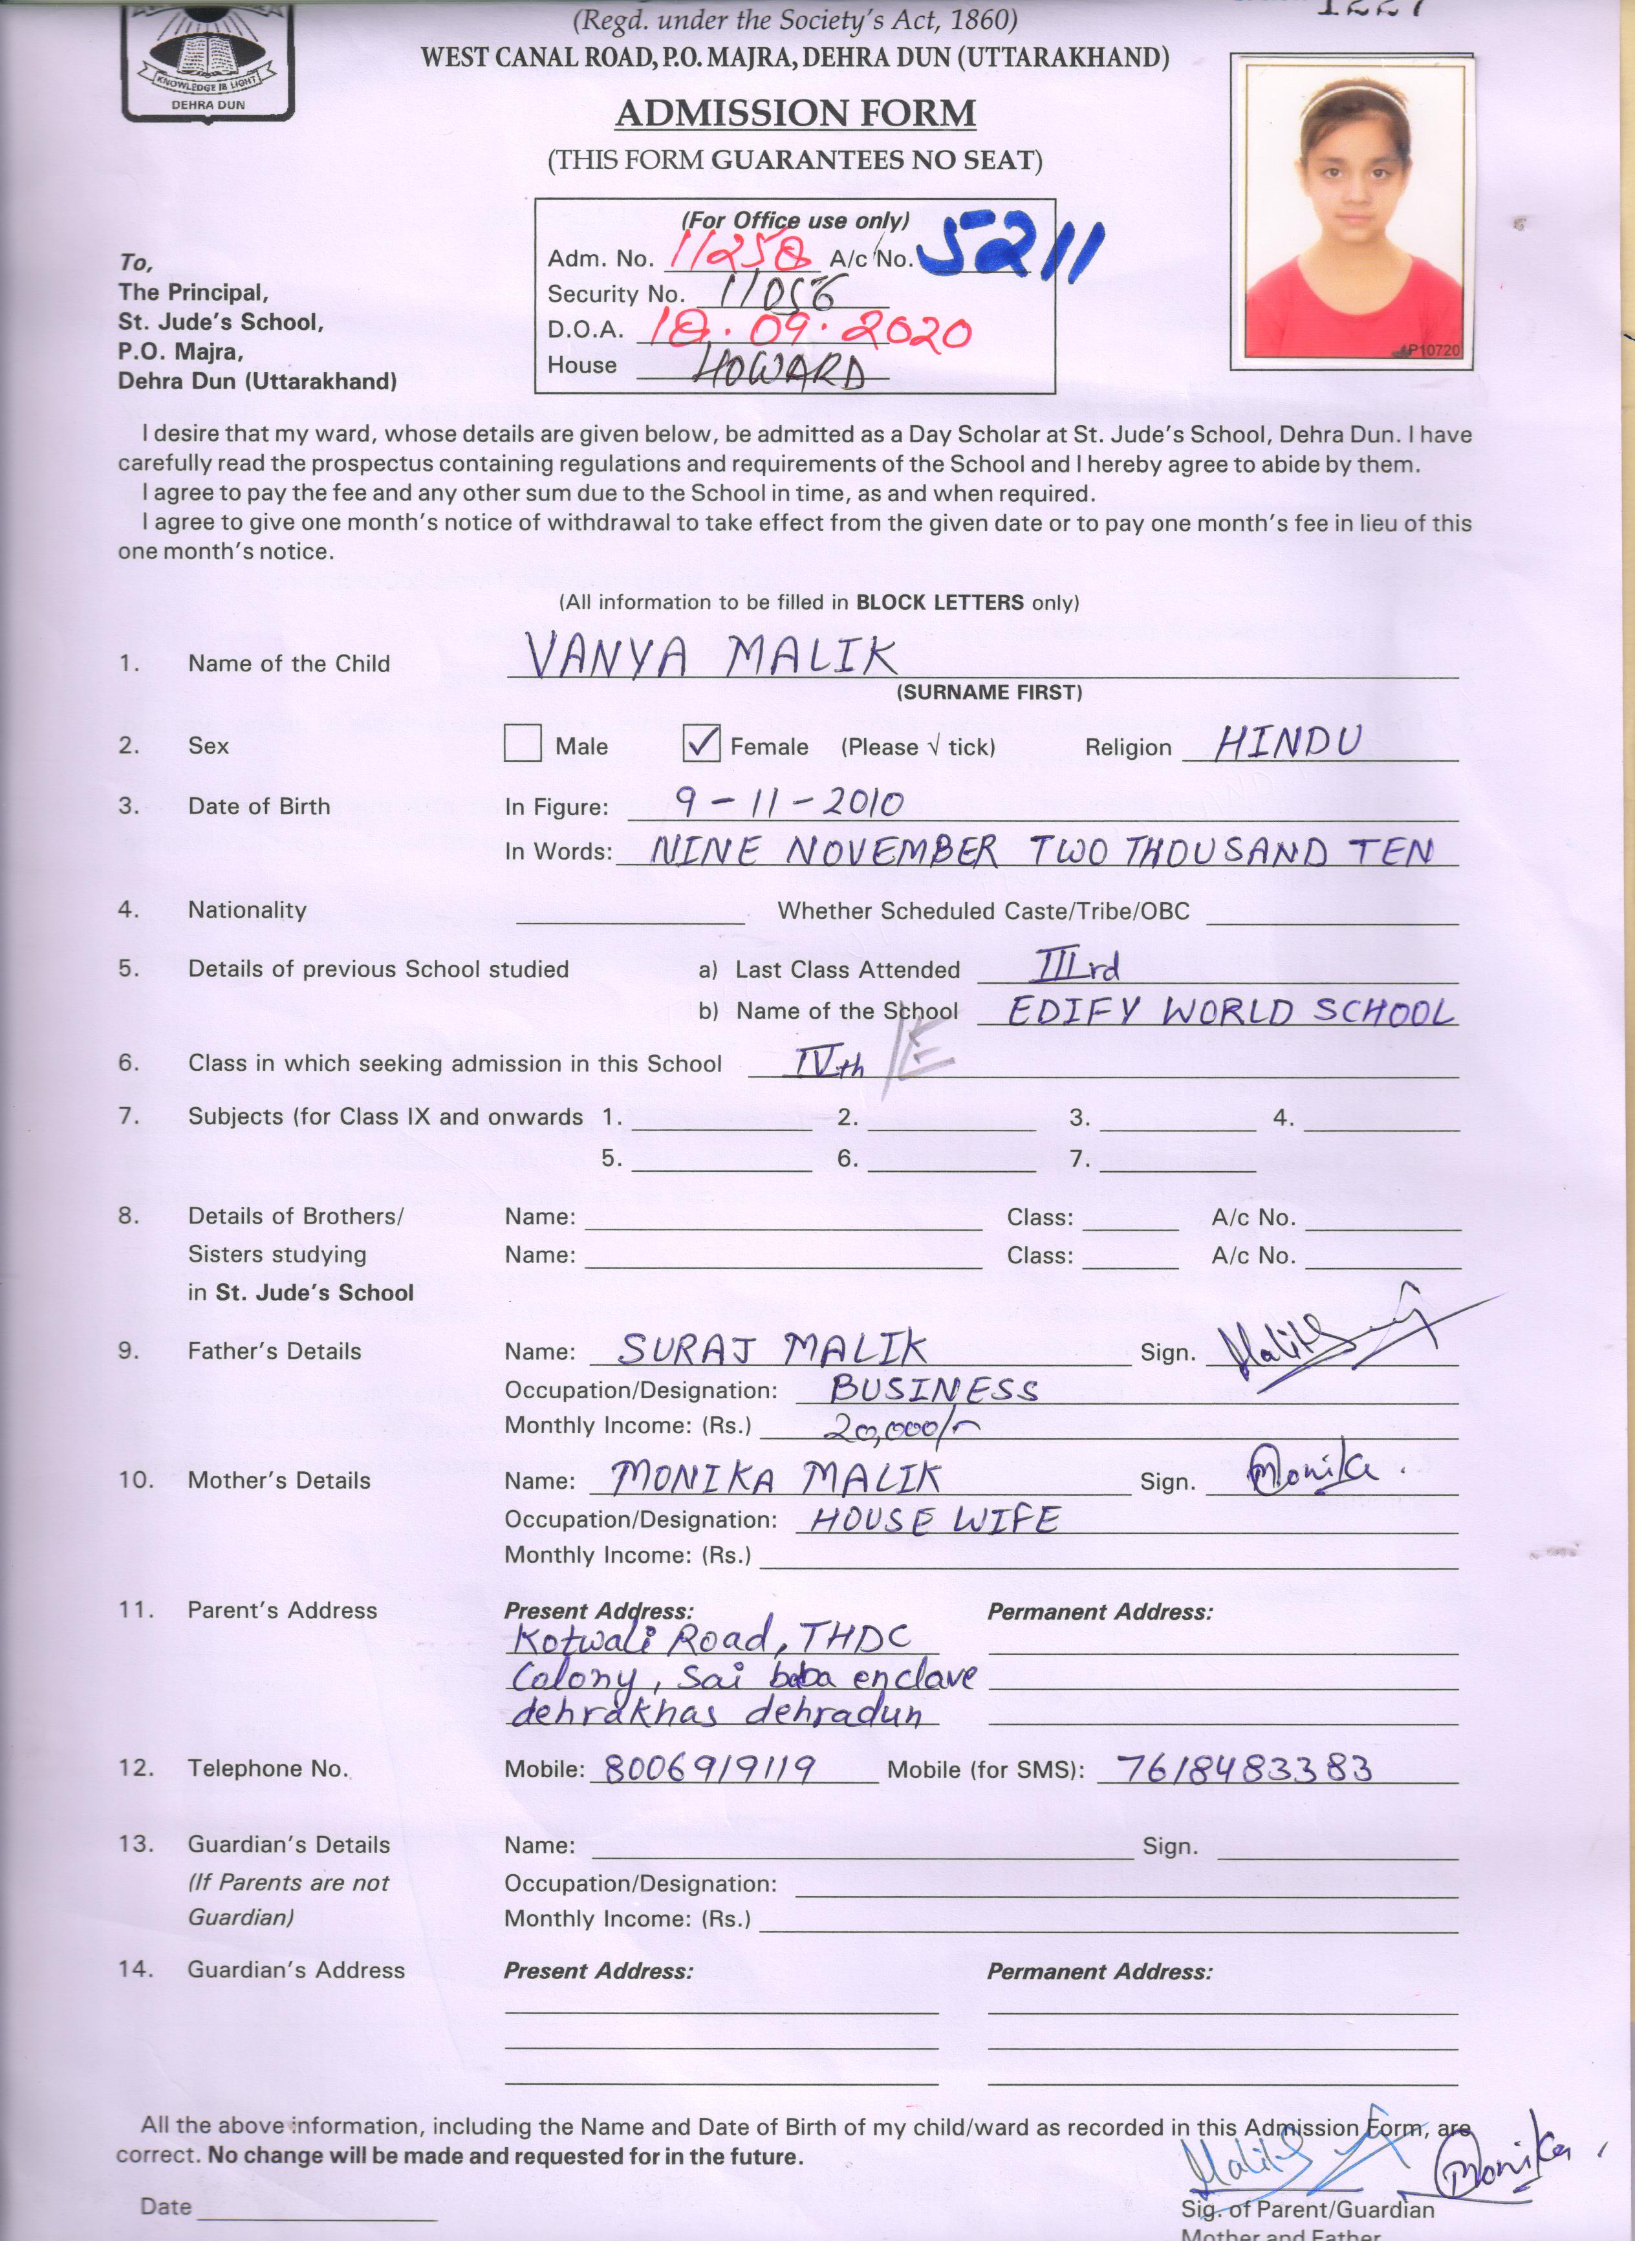 (Regd. under the Society's Act, 1860)
WEST CANAL ROAD, P.O. MAJRA, DEHRA DUN (UTTARAKHAND)
KNOWLEDGE IS LIGHT
DEHRA DUN
ADMISSION FORM
(THIS FORM GUARANTEES NO SEAT)
P10720
(For Office use only)
Adm. No. 11258 A/c No. 5211
Security No. 11056
D.O.A. 18.09.2020
House HOWARD
To,
The Principal,
St. Jude's School,
P.O. Majra,
Dehra Dun (Uttarakhand)
I desire that my ward, whose details are given below, be admitted as a Day Scholar at St. Jude's School, Dehra Dun. I have
carefully read the prospectus containing regulations and requirements of the School and I hereby agree to abide by them.
I agree to pay the fee and any other sum due to the School in time, as and when required.
I agree to give one month's notice of withdrawal to take effect from the given date or to pay one month's fee in lieu of this
one month's notice.
(All information to be filled in BLOCK LETTERS only)
1. Name of the Child VANYA MALIK
(SURNAME FIRST)
2. Sex Male ✓ Female (Please √ tick) Religion HINDU
3. Date of Birth In Figure: 9-11-2010
In Words: NINE NOVEMBER TWO THOUSAND TEN
4. Nationality Whether Scheduled Caste/Tribe/OBC
5. Details of previous School studied a) Last Class Attended IIIrd
b) Name of the School EDIFY WORLD SCHOOL
6. Class in which seeking admission in this School IVth /E
7. Subjects (for Class IX and onwards 1. 2. 3. 4.
5. 6. 7.
8. Details of Brothers/ Name: Class: A/c No.
Sisters studying Name: Class: A/c No.
in St. Jude's School
9. Father's Details Name: SURAJ MALIK Sign.
Occupation/Designation: BUSINESS
Monthly Income: (Rs.) 20,000/-
10. Mother's Details Name: MONIKA MALIK Sign. Monika.
Occupation/Designation: HOUSE WIFE
Monthly Income: (Rs.)
11. Parent's Address Present Address: Permanent Address:
Kotwali Road, THDC
Colony, Sai baba enclave
dehrakhas dehradun
12. Telephone No. Mobile: 8006919119 Mobile (for SMS): 7618483383
13. Guardian's Details Name: Sign.
(If Parents are not Occupation/Designation:
Guardian) Monthly Income: (Rs.)
14. Guardian's Address Present Address: Permanent Address:
All the above information, including the Name and Date of Birth of my child/ward as recorded in this Admission Form, are
correct. No change will be made and requested for in the future.
Monika
Date
Sig. of Parent/Guardian
Mother and Father